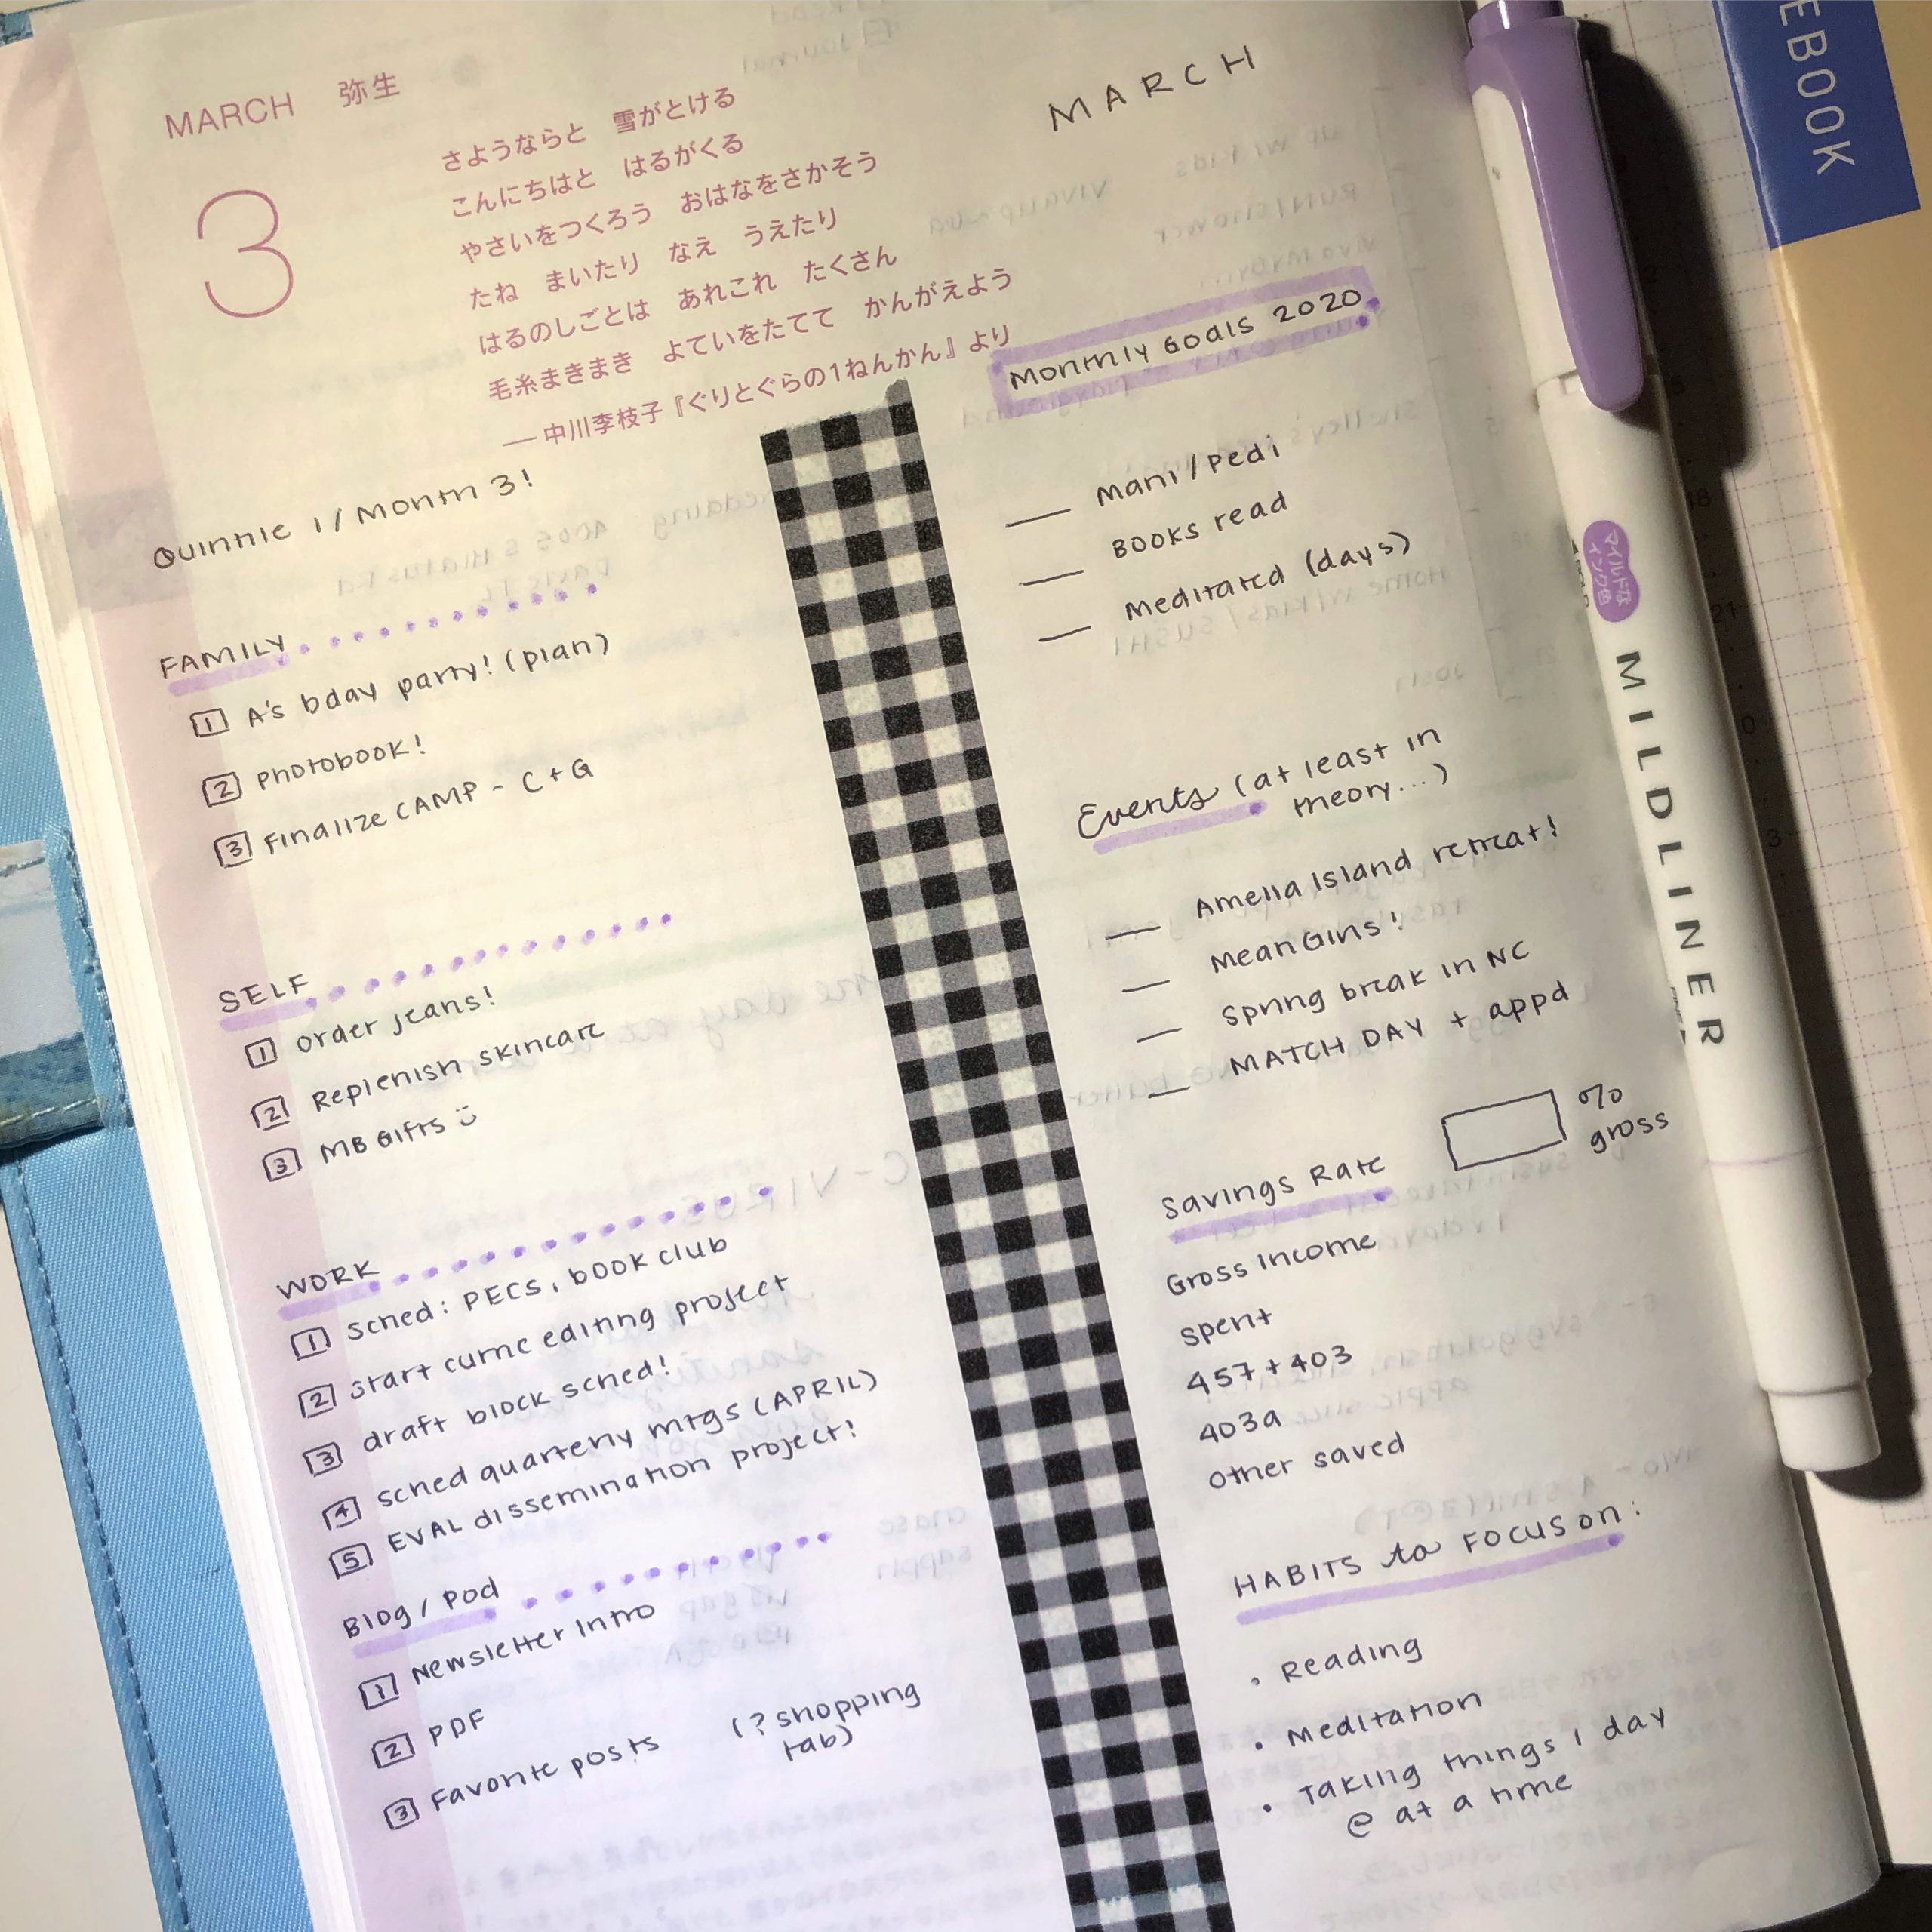 MARCH 弥生
3
さようならと 雪がとける
こんにちはと はるがくる
やさいをつくろう おはなをさかそう
たね まいたり なえ うえたり
はるのしごとは あれこれ たくさん
毛糸まきまき よていをたてて かんがえよう
— 中川李枝子『ぐりとぐらの1ねんかん』より
Quintile 1 / Month 3!
FAMILY
1 A's bday party! (plan)
2 Photobook!
3 Finalize CAMP - C + G
SELF
1 order jeans!
2 Replenish skincare
3 MB Gifts
WORK
1 sched: PECS, book club
2 start curric editing project
3 draft block sched!
4 sched quarterly mtgs (APRIL)
5 EVAL dissemination project!
Blog / Pod
1 Newsletter Intro
2 PDF
3 Favorite posts (? shopping
tab)
MARCH
Monthly Goals 2020
__ Mani / Pedi
__ Books read
__ Meditated (days)
Events (at least in
theory...)
__ Amelia Island retreat!
__ Mean Girls!
__ Spring break in NC
__ MATCH DAY + appd
Savings Rate % gross
Gross Income
spent
457 + 403
403a
other saved
HABITS to FOCUS on:
• Reading
• Meditation
• Taking things 1 day
@ at a time
マイルドな
インク色
MILDLINER
EBOOK